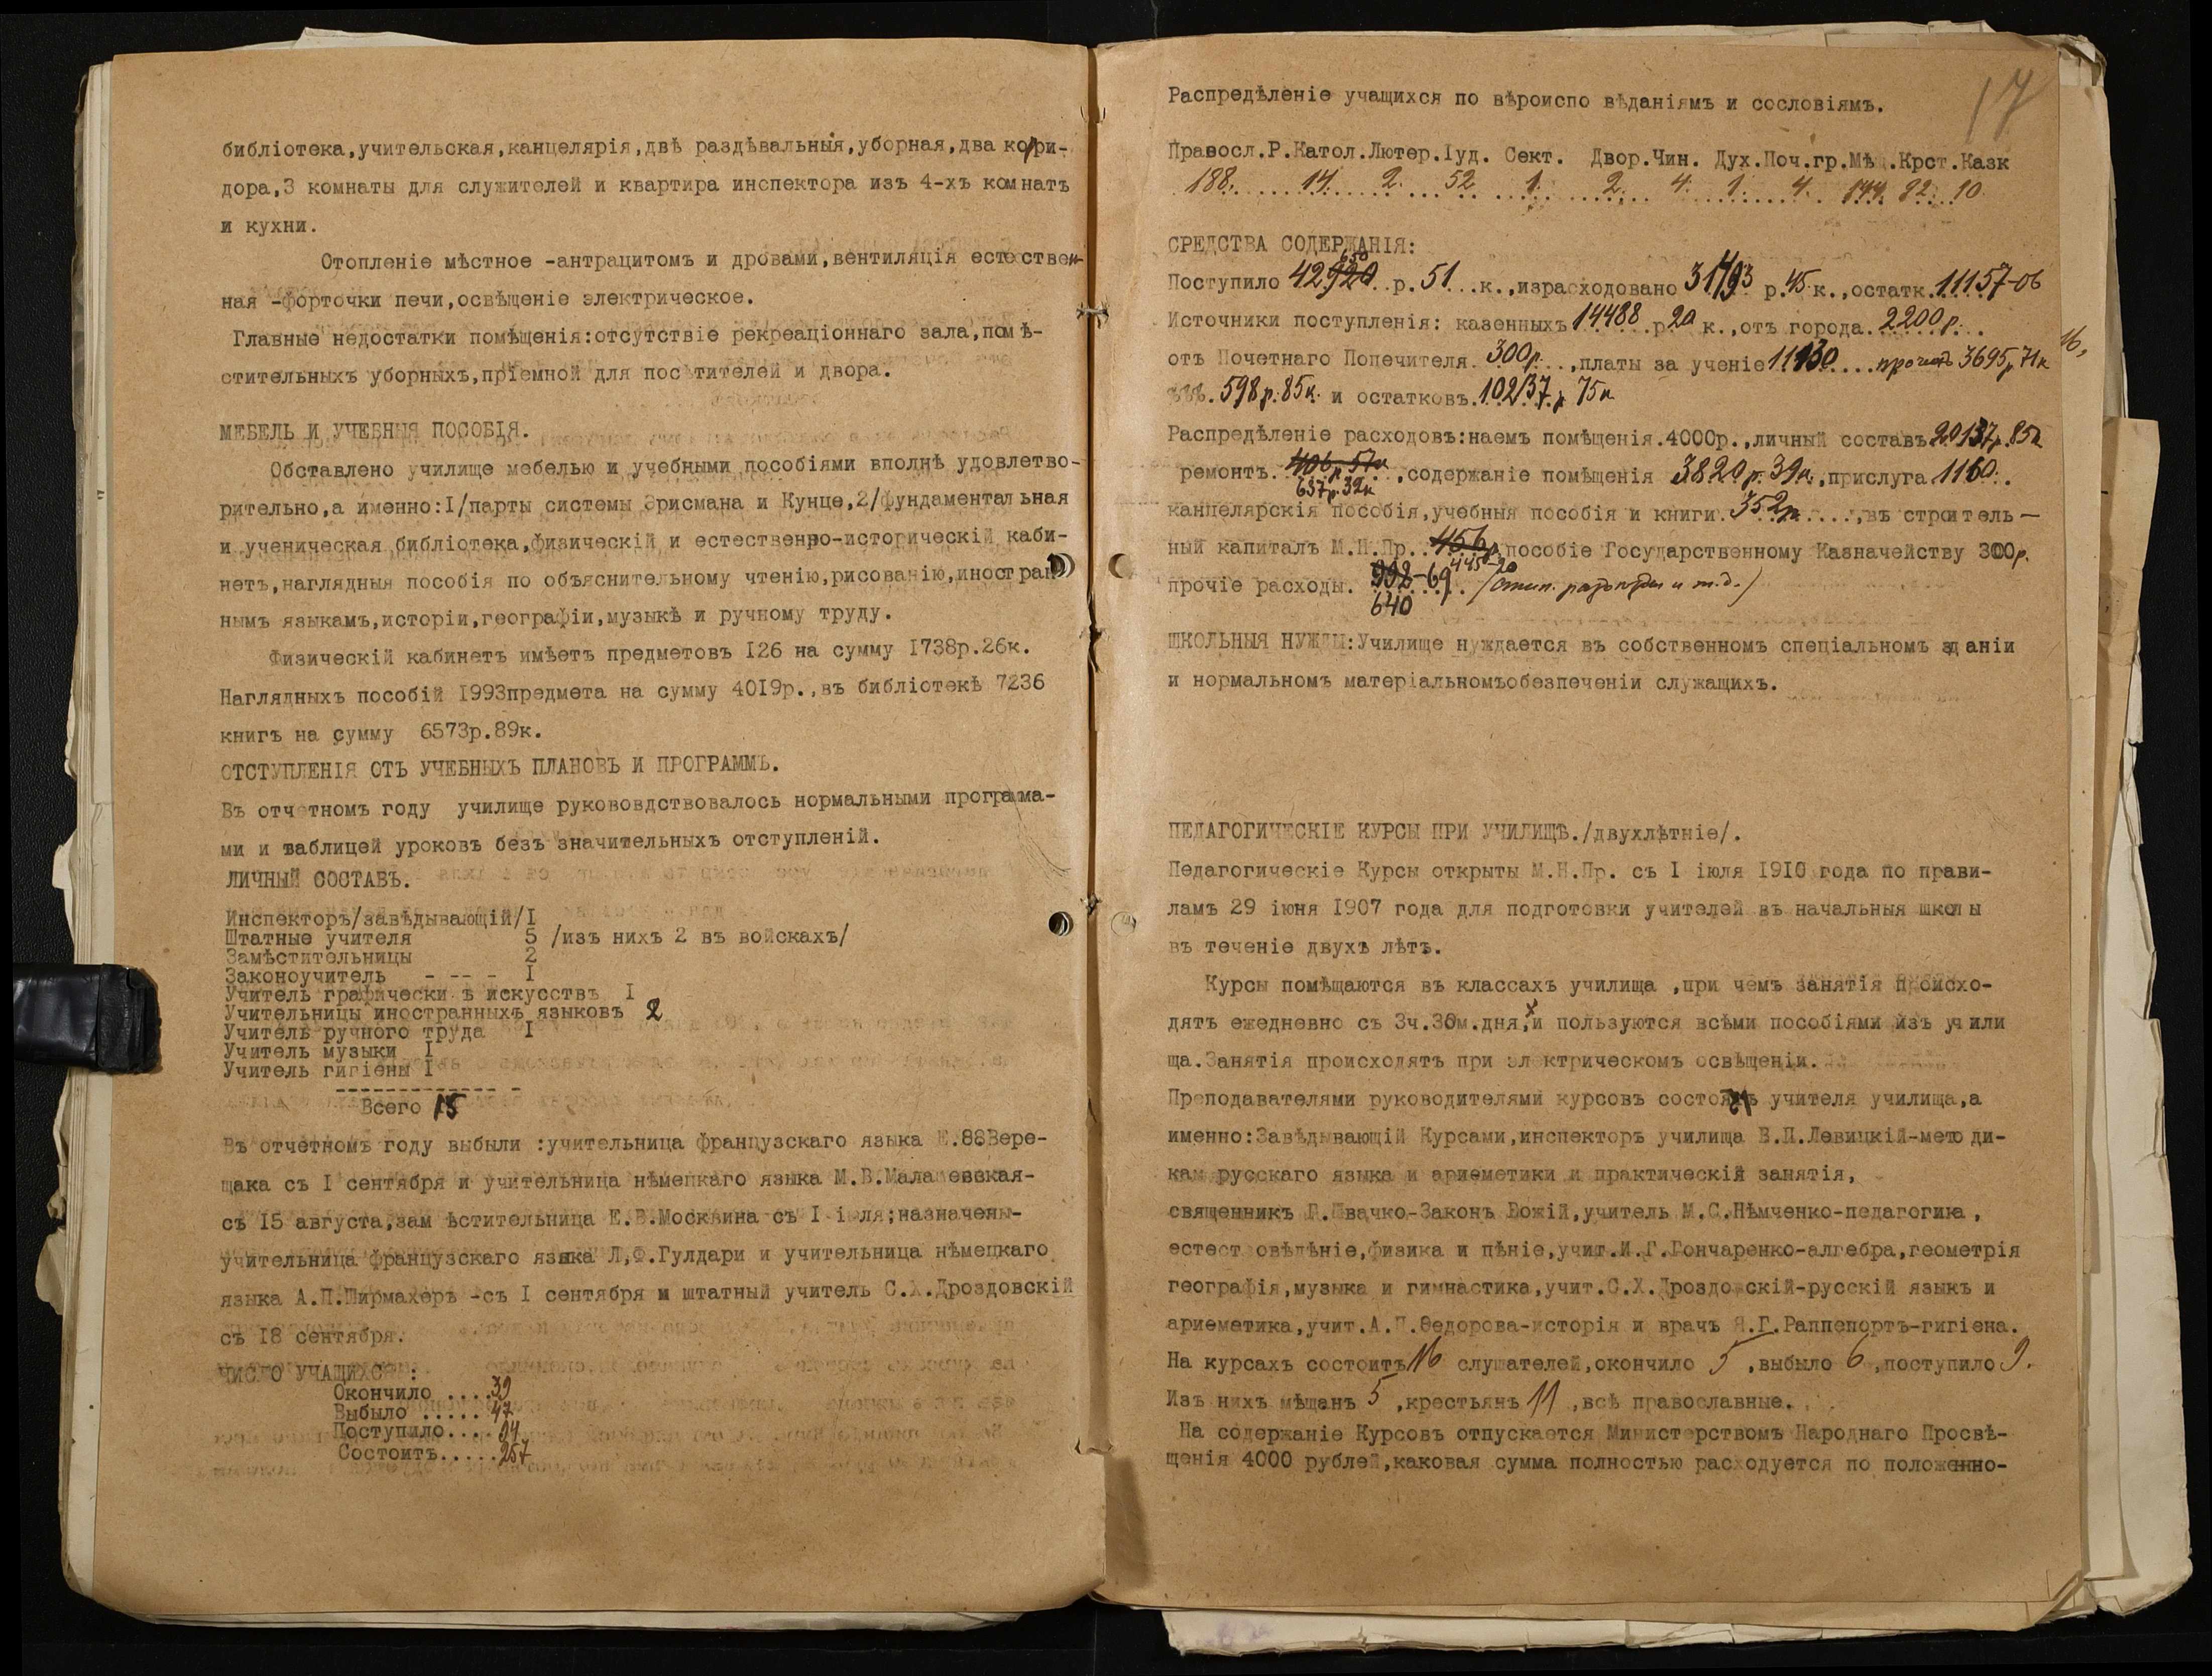 библіотека,учительская,канцелярія,двѣ раздѣвальныя,уборная,два корри-
дора,3 комнаты для служителей и квартира инспектора изъ 4-хъ комнатъ
и кухни.
Отопленіе мѣстное -антрацитомъ и дровами,вентиляція естествен-
ная -форточки печи,освѣщеніе электрическое.
Главные недостатки помѣщенія:отсутствіе рекреаціоннаго зала,помѣ-
стительныхъ уборныхъ,пріемной для посѣтителей и двора.
МЕБЕЛЬ И УЧЕБНЫЯ ПОСОБІЯ.
Обставлено училище мебелью и учебными пособіями вполнѣ удовлетво-
рительно,а именно:I/парты системы Эрисмана и Кунце,2/фундаментальная
и ученическая библіотека,физическій и естественно-историческій каби-
нетъ,наглядныя пособія по объяснительному чтенію,рисованію,иностран
нымъ языкамъ,исторіи,географіи,музыкѣ и ручному труду.
Физическій кабинетъ имѣетъ предметовъ I26 на сумму I738р.26к.
Наглядныхъ пособій I993предмета на сумму 40I9р.,въ библіотекѣ 7236
книгъ на сумму 6573р.89к.
ОТСТУПЛЕНІЯ ОТЪ УЧЕБНЫХЪ ПЛАНОВЪ И ПРОГРАММЪ.
Въ отчетномъ году училище рукововдствовалось нормальными програма-
ми и таблицей уроковъ безъ значительныхъ отступленій.
ЛИЧНЫЙ СОСТАВЪ.
Инспекторъ/завѣдывающій/I
Штатные учителя 5 /изъ нихъ 2 въ войскахъ/
Замѣстительницы 2
Законоучитель - -- - I
Учитель графически ъ искусствъ I
Учительницы иностранныхъ языковъ 2
Учитель ручного труда I
Учитель музыки I
Учитель гигіены I
------------- -
Всего 15
Въ отчетномъ году выбыли :учительница французскаго языка Е.88Вере-
щака съ I сентября и учительница нѣмецкаго языка М.В.Малашевская-
съ I5 августа,зам ѣстительница Е.В.Москвина съ I іюля;назначены-
учительница французскаго языка Л,Ф.Гулдари и учительница нѣмецкаго
языка А.П.Ширмахеръ -съ I сентября и штатный учитель С.Х.Дроздовскій
съ I8 сентября.
ЧИСЛО УЧАЩИХСЯ :
Окончило ....39
Выбыло .....47
Поступило....94
Состоитъ.....257
17
Распредѣленіе учащихся по вѣроиспо вѣданіямъ и сословіямъ.
Правосл.Р.Катол.Лютер.Іуд. Сект. Двор.Чин. Дух.Поч.гр.Мѣщ.Крст.Казк
188. 14. 2. 52 1. 2. 4. 1. 4. 144. 92. 10.
СРЕДСТВА СОДЕРЖАНІЯ:
650
Поступило 42920 р. 51 к.,израсходовано 31493 р.45 к.,остатк.11157-06
Источники поступленія: казенныхъ 14488 р 20 к.,отъ города.2200р.
16,
отъ Почетнаго Попечителя.300р.,платы за ученіе 11130 прочихъ 3695р71к
598р.85к. и остатковъ.10237.р 75к
Распредѣленіе расходовъ:наемъ помѣщенія.4000р.,личный составъ 20137р.85к
ремонтъ.406р.57к,содержаніе помѣщенія 3820р.39к.,прислуга 1160.
637р.32к
канцелярскія пособія,учебныя пособія и книги.352р.,въ строитель-
ный капиталъ М.Н.Пр.456р пособіе Государственному Казначейству 300р.
445-20
прочіе расходы. 992-69 и т.д.)
640
ШКОЛЬНЫЯ НУЖДЫ:Училище нуждается въ собственномъ спеціальномъ зданіи
и нормальномъ матеріальномъобезпеченіи служащихъ.
ПЕДАГОГИЧЕСКІЕ КУРСЫ ПРИ УЧИЛИЩѢ./двухлѣтніе/.
Педагогическіе Курсы открыты М.Н.Пр. съ I іюля I910 года по прави-
ламъ 29 іюня I907 года для подготовки учителей въ начальныя школы
въ теченіе двухъ лѣтъ.
Курсы помѣщаются въ классахъ училища ,при чемъ занятія происхо-
дятъ ежедневно съ 3ч.30м.дня,и пользуются всѣми пособіями изъ учили
ща.Занятія происходятъ при электрическомъ освѣщеніи.
Преподавателями руководителями курсовъ состоятъ учителя училища,а
именно:Завѣдывающій Курсами,инспекторъ училища В.П.Левицкій-методи-
кам русскаго языка и ариѳметики и практическія занятія,
священникъ П.Швачко-Законъ Божій,учитель М.С.Нѣмченко-педагогика,
естест овѣдѣніе,физика и пѣніе,учит.И.Г.Гончаренко-алгебра,геометрія
географія,музыка и гимнастика,учит.С.Х.Дроздовскій-русскій языкъ и
ариѳметика,учит.А.П.Ѳедорова-исторія и врачъ Я.Г.Раппепортъ-гигіена.
На курсахъ состоитъ 16 слушателей,окончило 5 ,выбыло 6 ,поступило 9.
Изъ нихъ мѣщанъ 5 ,крестьянъ 11 ,всѣ православные.
На содержаніе Курсовъ отпускается Министерствомъ Народнаго Просвѣ-
щенія 4000 рублей,каковая сумма полностью расходуется по положенно-